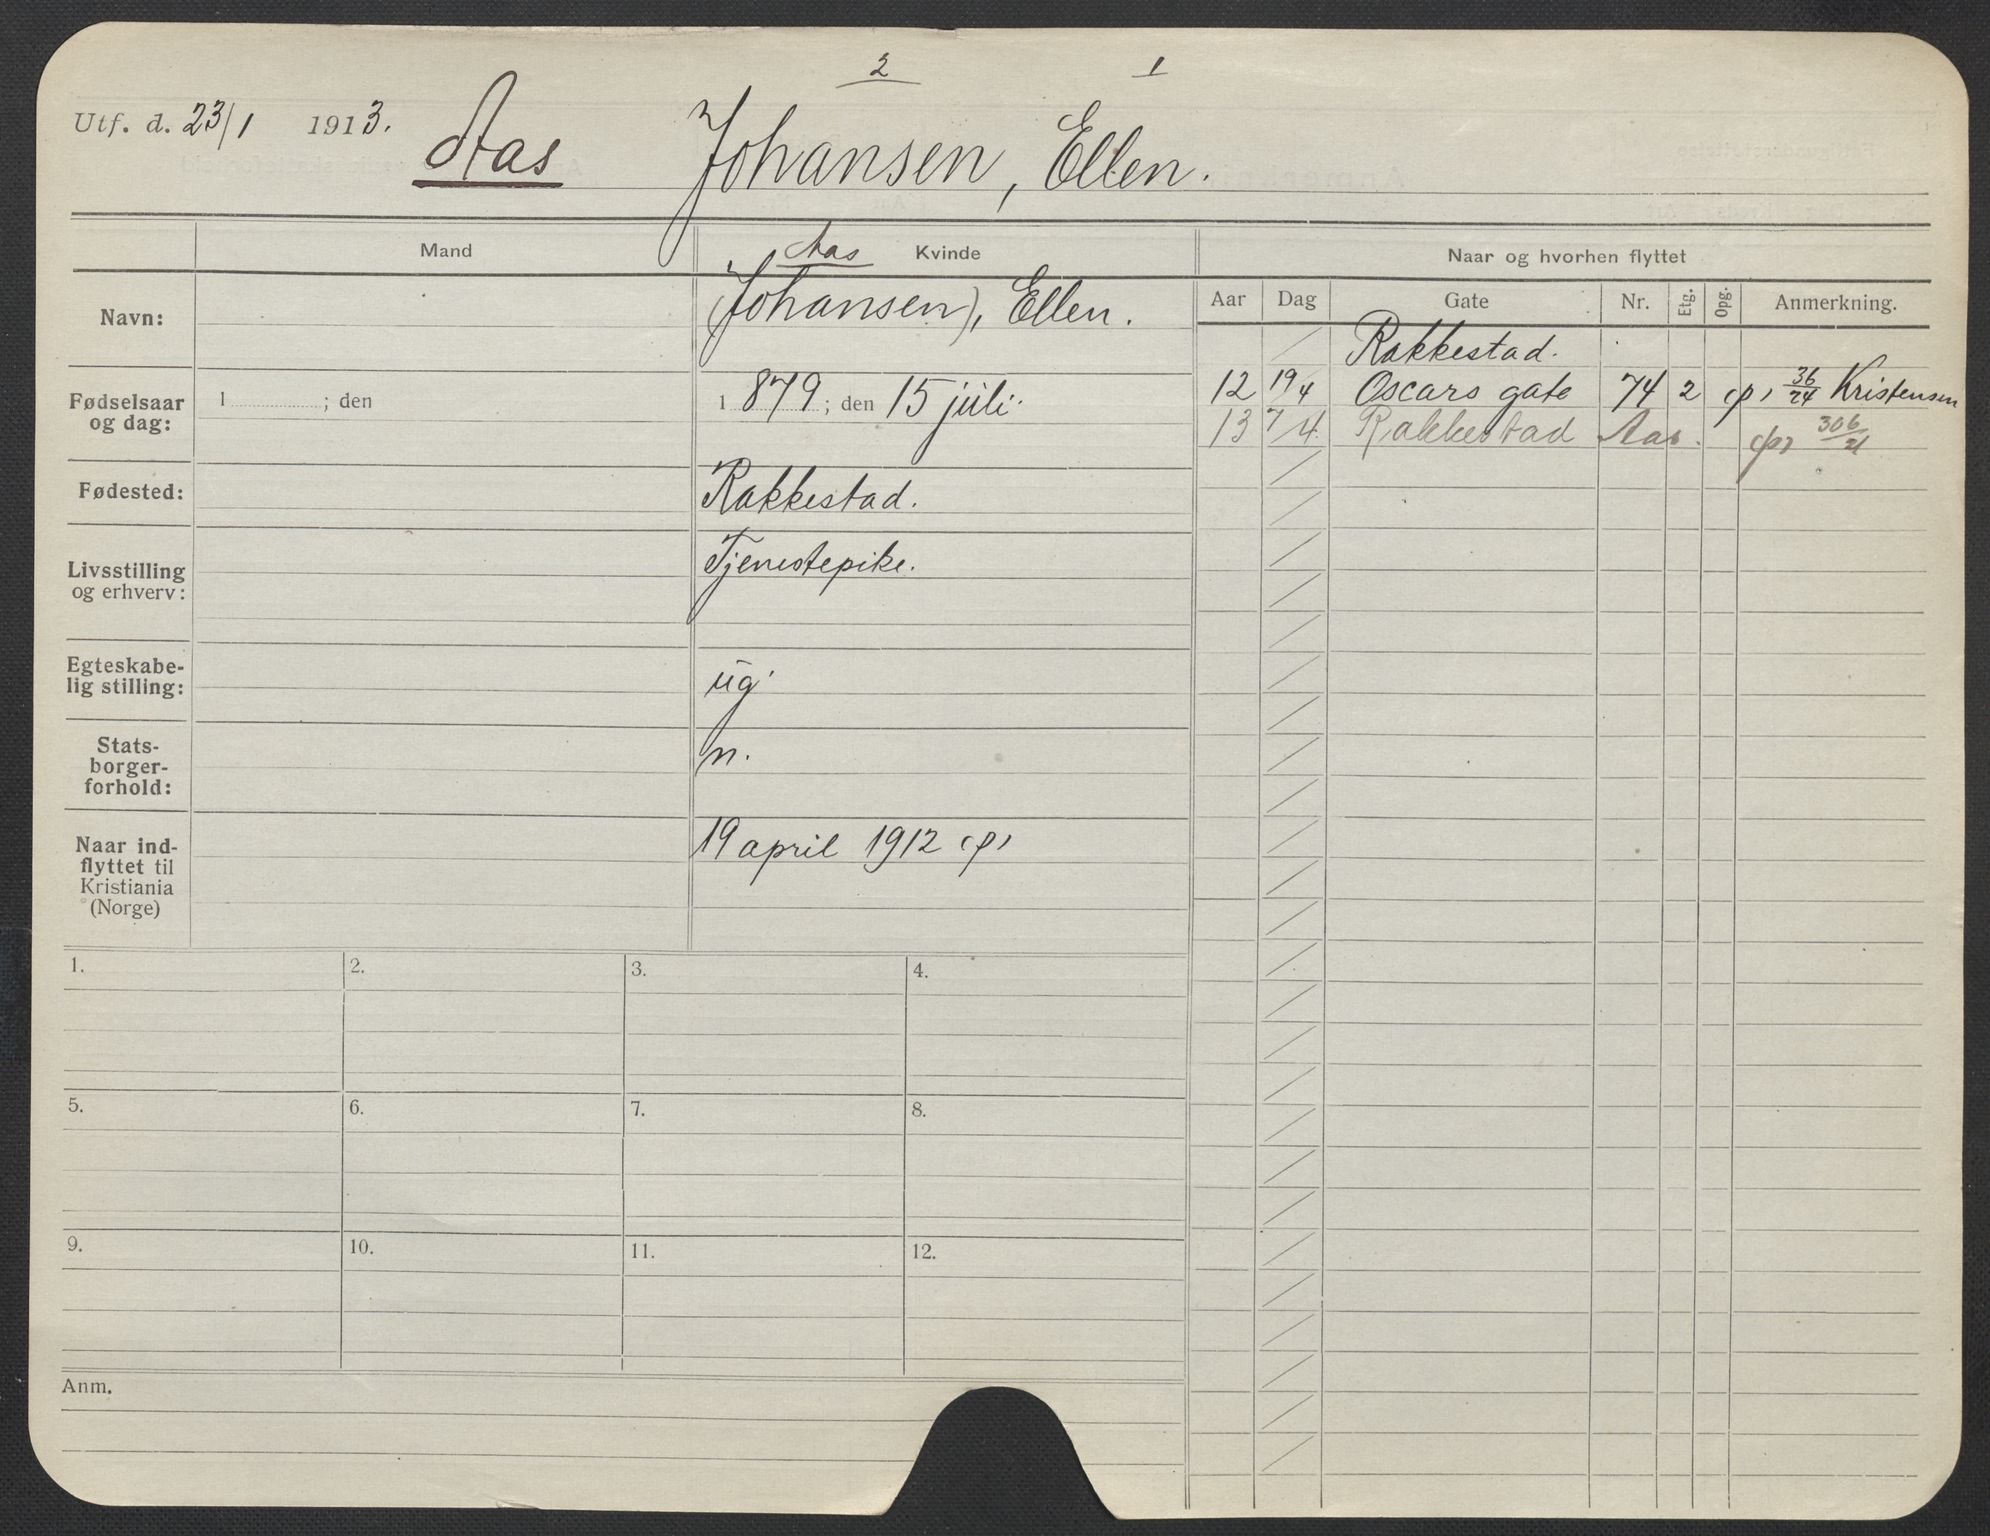 2 1
Utf. d. 23/1 1913. Aas Johansen, Ellen.
Mand Aas Kvinde Naar og hvorhen flyttet
Navn: (Johansen), Ellen.
Aar Dag Gate Nr. Etg. Opg. Anmerkning.
Rakkestad.
Fødselsaar og dag: 1 ; den 1879; den 15 juli.
12 19/4 Oscars gate 74 2 36/24 Kristensen
13 7/4 Rakkestad Aas.
Fødested: Rakkestad.
Livsstilling og erhverv: Tjenestepike.
Egteskabe-
lig stilling: ug.
Stats-
borger-
forhold: n.
Naar ind-
flyttet til
Kristiania
(Norge) 19 april 1912
1. 2. 3. 4.
5. 6. 7. 8.
9. 10. 11. 12.
Anm.